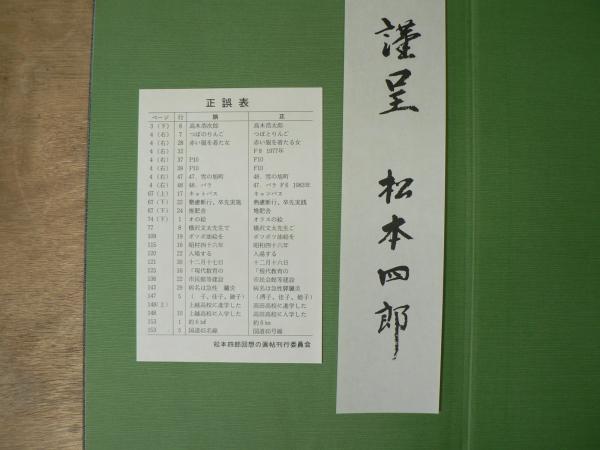 謹呈 松本四郎
正誤表
ページ 行 誤 正
3(下) 6 高木浩次郎 高木浩太郎
4(右) 7 つぼのりんご つぼとりんご
4(右) 28 赤い服を着た女 赤い服を着たる女
4(右) 32 F8 1977年
4(右) 37 P10 F10
4(右) 39 P10 F10
4(右) 47 47. 雪の旭町 46. 雪の旭町
4(右) 48 48. バラ 47. バラ F6 1983年
67(上) 17 キャトバス キャンバス
67(下) 22 熟慮断行、卒先実施 熟慮断行、卒先実践
67(下) 24 堆肥舎 堆肥舎
74(下) 1 オの絵 オリスの絵
77 8 横沢文太先生で 横沢文太先生ご
109 19 ポツポ油絵を ポツポツ油絵を
115 16 昭村四十六年 昭和四十六年
120 22 人場する 入場する
121 20 十二月十七日 十二月十六日
125 16 「現代教育の 「現代教育の
136 22 市民館等建設 市民会館等建設
143 29 病名は急性 臓炎 病名は急性膵臓炎
147 5 ( 子、佳子、綾子)
148(上) 上越高校に進学した 高田高校に進学した
148 10 上越高校に入学した 高田高校に入学した
153 1 約6㎢ 約6㎞
153 5 国道45名線 国道45号線
松本四郎回想の画帖刊行委員会